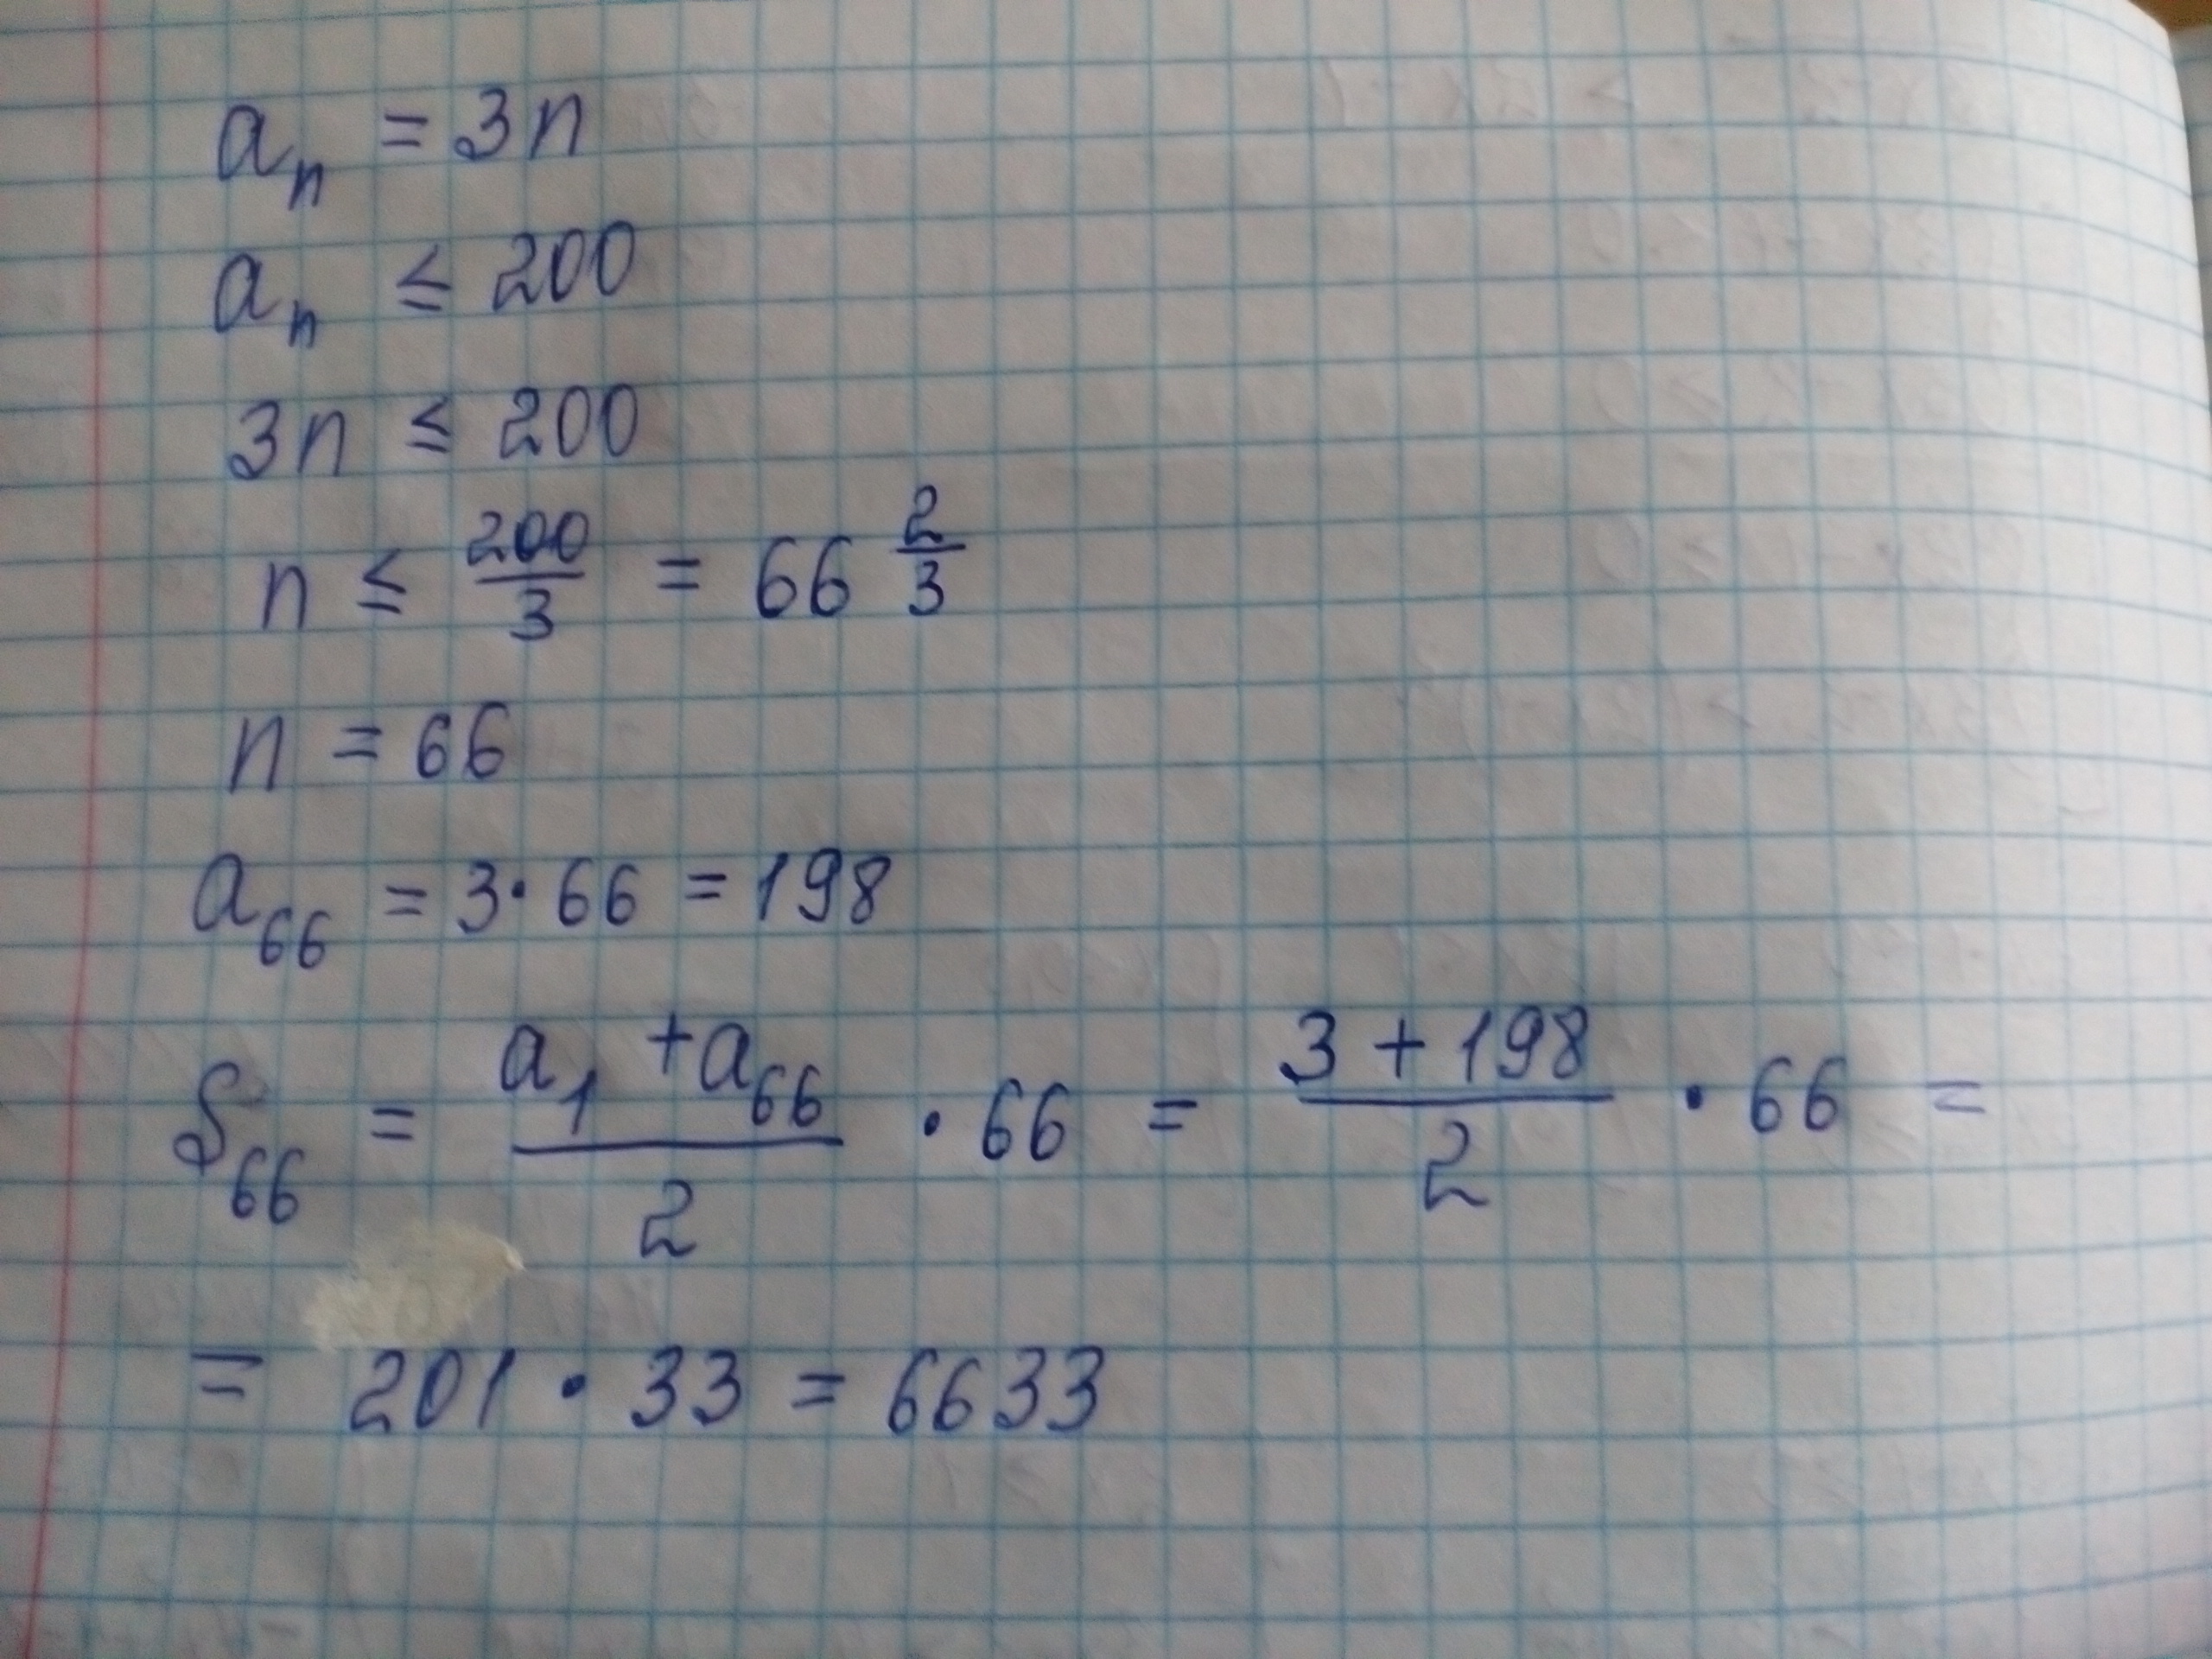 aₙ = 3n
aₙ ≤ 200
3n ≤ 200
n ≤ 200/3 = 66 2/3
n = 66
a₆₆ = 3·66 = 198
S₆₆ = (a₁ + a₆₆)/2 · 66 = (3 + 198)/2 · 66 =
= 201 · 33 = 6633